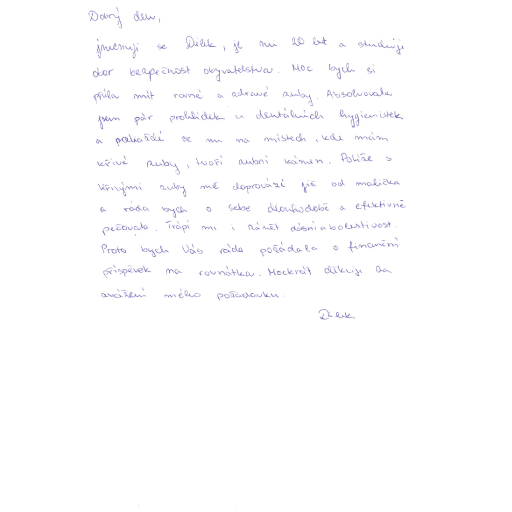 Dobrý den,
jmenuji se Dilek, je mi 20 let a studuji
obor bezpečnost obyvatelstva. Moc bych si
přála mít rovné a zdravé zuby. Absolvovala
jsem pár prohlídek u dentálních hygienistek
a pokaždé se mi na místech, kde mám
křivé zuby, tvoří zubní kámen. Potíže s
křivými zuby mě doprovází již od malička
a ráda bych o sebe dlouhodobě a efektivně
pečovala. Trápí mi i zánět dásní a bolestivost.
Proto bych Vás ráda požádala o finanční
příspěvek na rovnátka. Mockrát děkuji za
zvážení mého požadavku.
Dilek